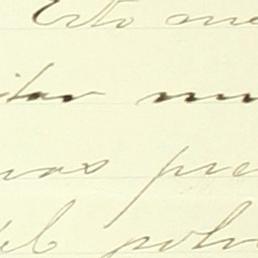 Esto me
itar mu
vas pre
del polv